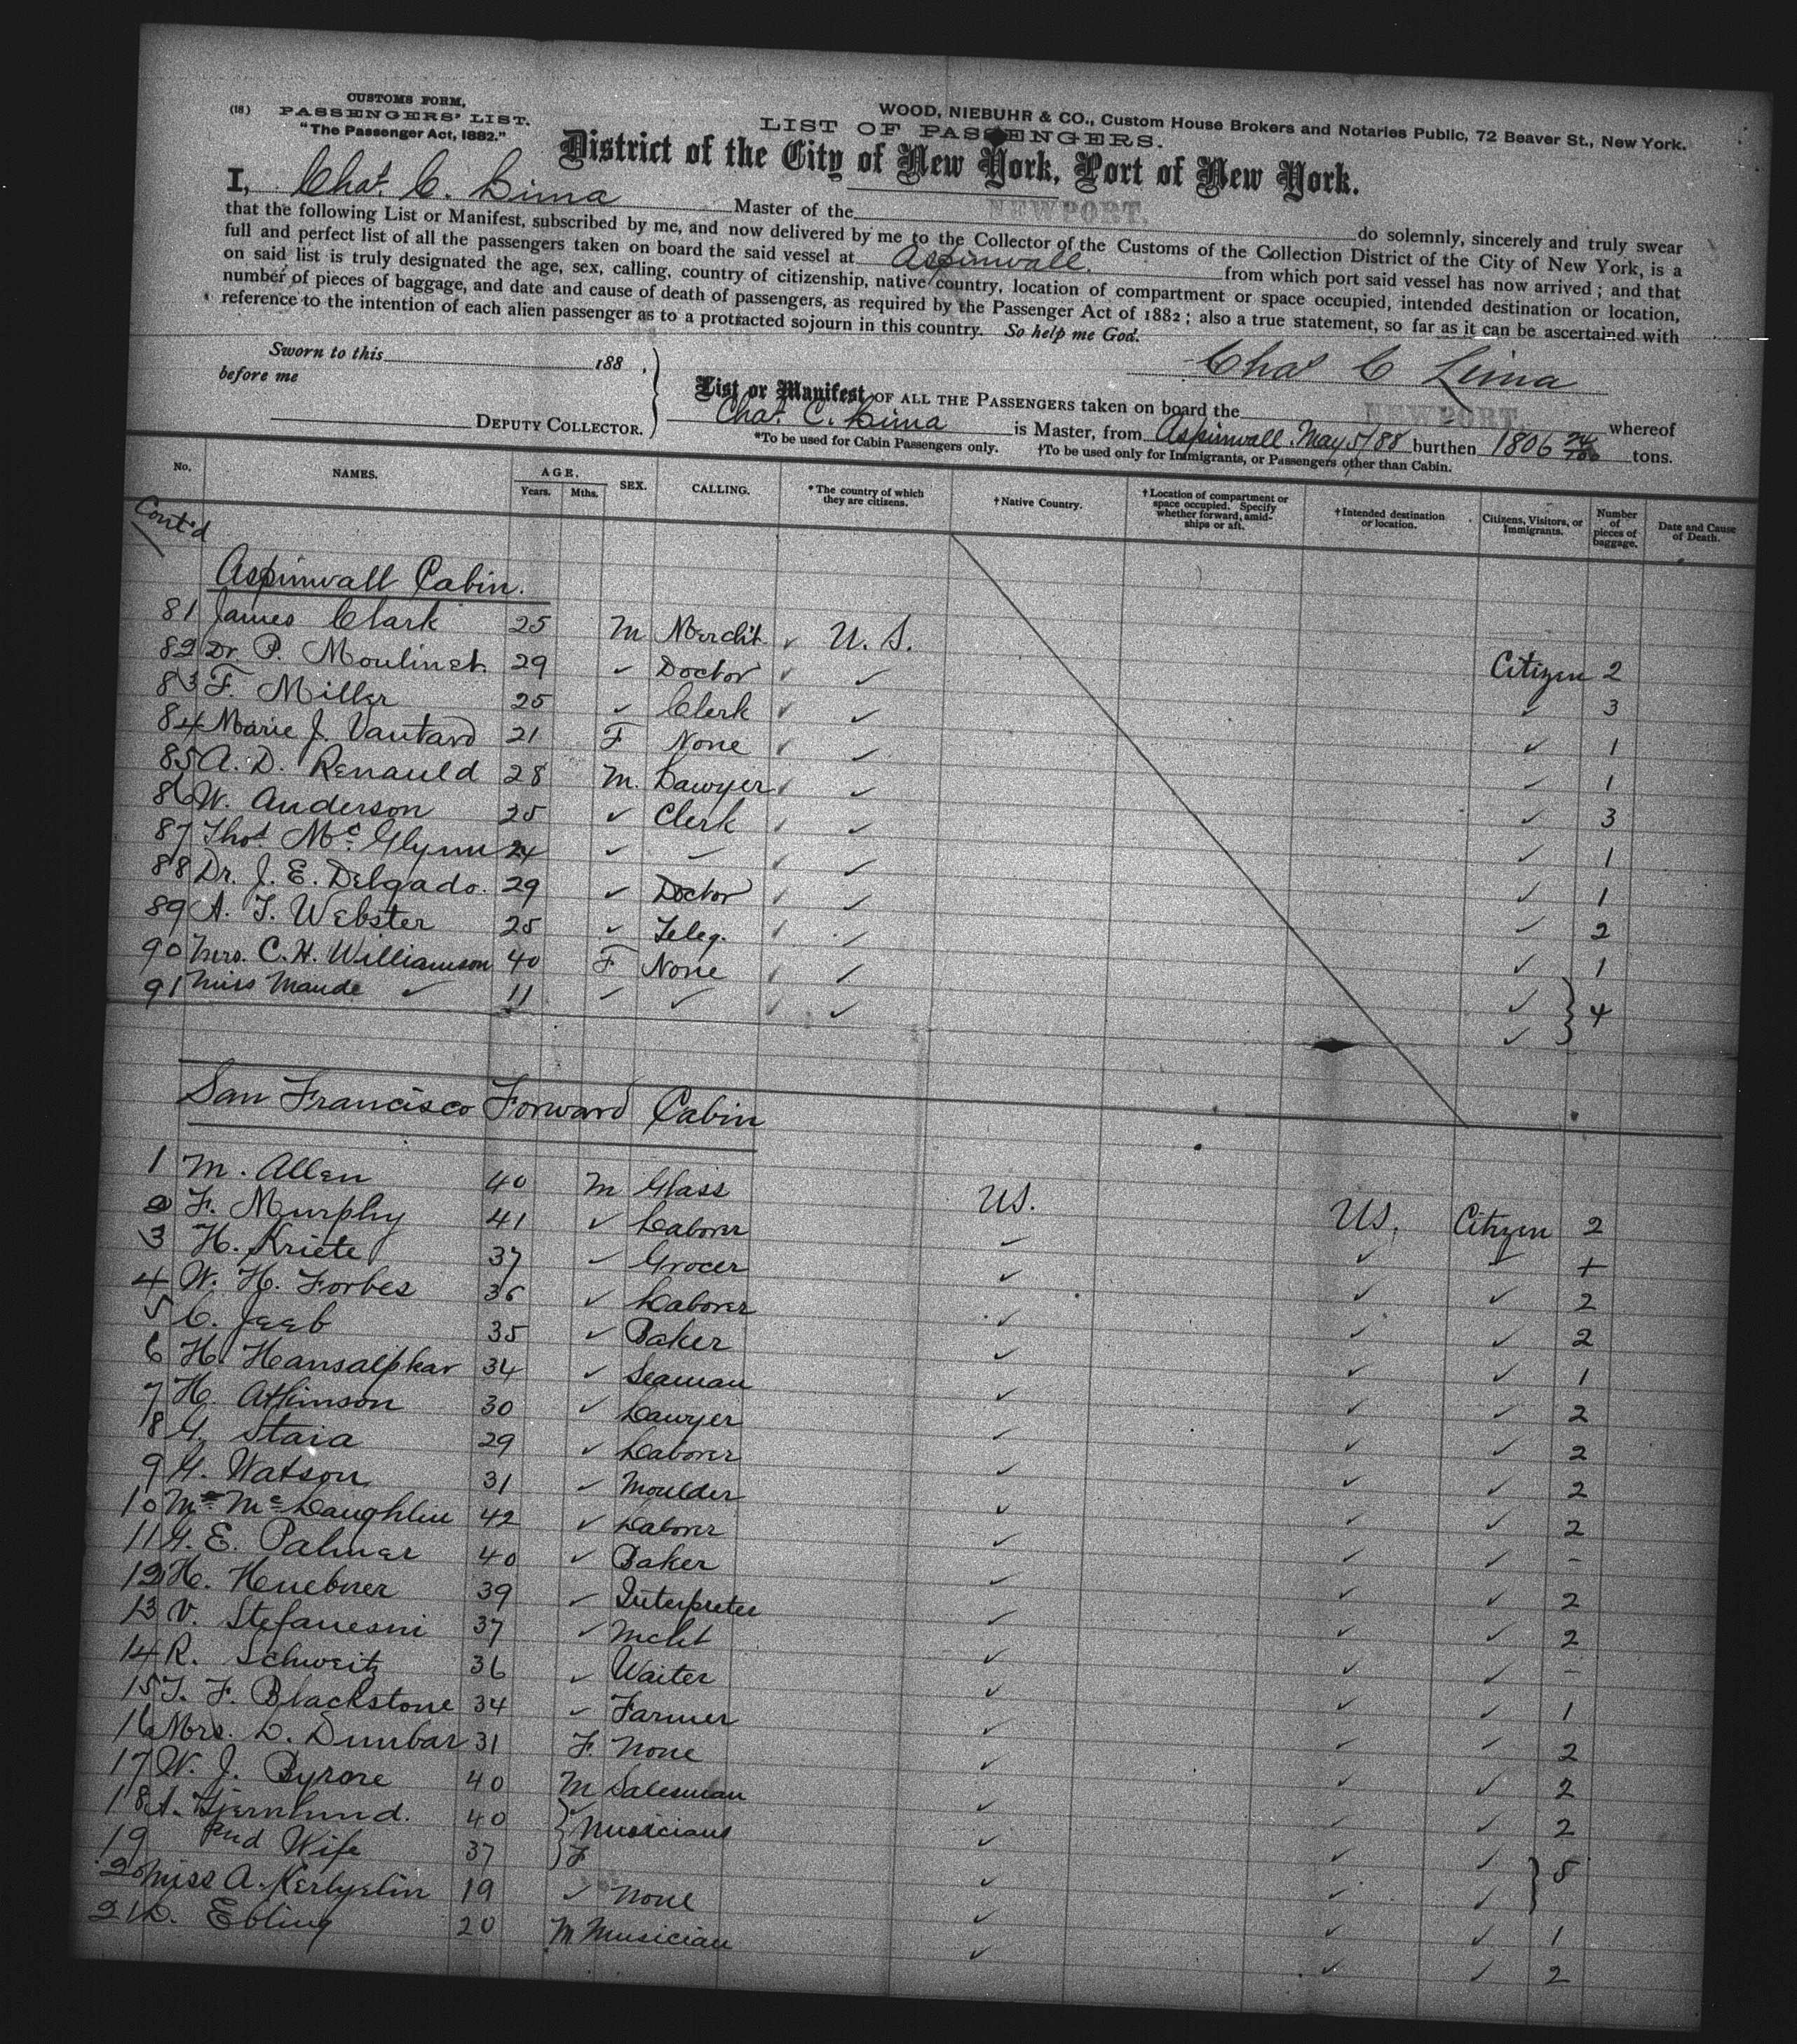 (18)
CUSTOMS FORM,
PASSENGERS' LIST.
"The Passenger Act, 1882."
WOOD, NIEBUHR & CO., Custom House Brokers and Notaries Public, 72 Beaver St., New York.
LIST OF PASSENGERS.
District of the City of New York, Port of New York.
I, Chas. C. Lima Master of the NEWPORT. do solemnly, sincerely and truly swear
that the following List or Manifest, subscribed by me, and now delivered by me to the Collector of the Customs of the Collection District of the City of New York, is a
full and perfect list of all the passengers taken on board the said vessel at Aspinwall. from which port said vessel has now arrived; and that
on said list is truly designated the age, sex, calling, country of citizenship, native country, location of compartment or space occupied, intended destination or location,
number of pieces of baggage, and date and cause of death of passengers, as required by the Passenger Act of 1882; also a true statement, so far as it can be ascertained with
reference to the intention of each alien passenger as to a protracted sojourn in this country. So help me God.
Chas C Lima
Sworn to this 188 ,
before me
DEPUTY COLLECTOR.
List or Manifest OF ALL THE PASSENGERS taken on board the NEWPORT. whereof
Chas. C. Lima is Master, from Aspinwall. May 5/88 burthen 1806 24/100 tons.
*To be used for Cabin Passengers only. †To be used only for Immigrants, or Passengers other than Cabin.
No. NAMES. AGE. Years. Mths. SEX. CALLING. *The country of which they are citizens. †Native Country. †Location of compartment or space occupied. Specify whether forward, amidships or aft. †Intended destination or location. Citizens, Visitors, or Immigrants. Number of pieces of baggage. Date and Cause of Death.
Cont'd
Aspinwall Cabin.
81 James Clark 25 M Mercht. ✓ U. S. Citizen 2
82 Dr. P. Moulinet. 29 ✓ Doctor ✓ ✓ ✓ 3
83 F. Miller 25 ✓ Clerk ✓ ✓ ✓ 1
84 Marie J. Vautard 21 F None ✓ ✓ ✓ 1
85 A. D. Renauld 28 M. Lawyer ✓ ✓ ✓ 3
86 W. Anderson 25 ✓ Clerk ✓ ✓ ✓ 1
87 Thos Mc Glynn 24 ✓ ✓ ✓ ✓ ✓ 1
88 Dr. J. E. Delgado. 29 ✓ Doctor ✓ ✓ ✓ 2
89 A. T. Webster 25 ✓ Teleg. ✓ ✓ ✓ 1
90 Mrs. C. H. Williamson 40 F None ✓ ✓ ✓ } 4
91 Miss Maude ✓ 11 ✓ ✓ ✓ ✓ ✓
San Francisco Forward Cabin
1 M. Allen 40 M Glass US. US. Citizen 2
2 F. Murphy 41 ✓ Laborer ✓ ✓ ✓ +
3 H. Kriete 37 ✓ Grocer ✓ ✓ ✓ 2
4 W. H. Forbes 36 ✓ Laborer ✓ ✓ ✓ 2
5 C. Jeeb 35 ✓ Baker ✓ ✓ ✓ 1
6 H. Hansalpkar 34 ✓ Seaman ✓ ✓ ✓ 2
7 H. Atkinson 30 ✓ Lawyer ✓ ✓ ✓ 2
8 G. Staia 29 ✓ Laborer ✓ ✓ ✓ 2
9 G. Watson 31 ✓ Moulder ✓ ✓ ✓ 2
10 Mr Mc Laughlin 42 ✓ Laborer ✓ ✓ ✓ -
11 G. E. Palmer 40 ✓ Baker ✓ ✓ ✓ 2
12 H. Huebner 39 ✓ Interpreter ✓ ✓ ✓ 2
13 V. Stefanesni 37 ✓ Mcht ✓ ✓ ✓ -
14 R. Schweitz 36 ✓ Waiter ✓ ✓ ✓ 1
15 T. F. Blackstone 34 ✓ Farmer ✓ ✓ ✓ 2
16 Mrs. L. Dunbar 31 F. None ✓ ✓ ✓ 2
17 W. J. Byrone 40 M Salesman ✓ ✓ ✓ 2
18 A. Hjernlund. 40 ✓ } Musicians ✓ ✓ ✓ } 5
19 and Wife 37 F ✓ ✓ ✓
20 Miss A. Kerlyelin 19 ✓ None ✓ ✓ ✓ 1
21 D. Ebling 20 M Musician ✓ ✓ ✓ 2